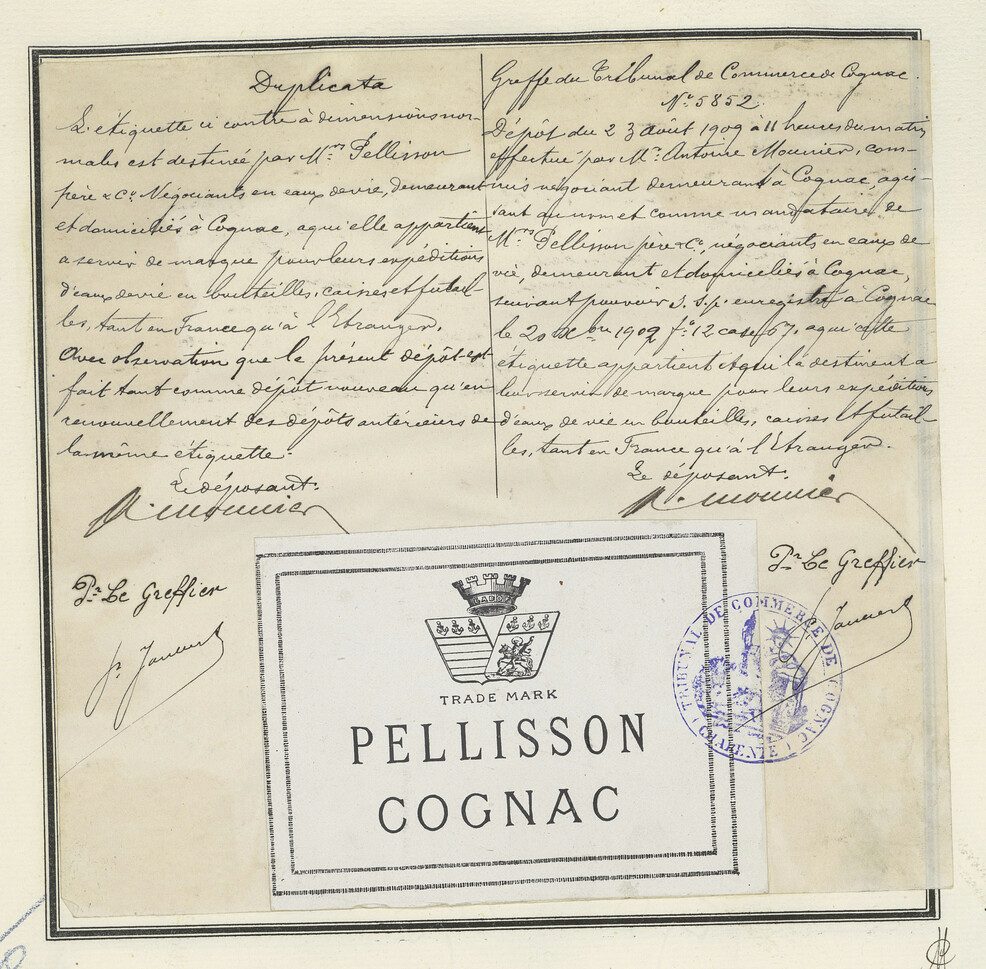 Duplicata
L'étiquette ci contre à dimensions nor-
males est destinée par Mrs Pellisson
père & Cie Négociants en eaux de vie, demeurant
et domiciliés à Cognac, à qui elle appartient
a servir de marque pour leurs expéditions
d'eaux de vie en bouteilles, caisses et futail-
les, tant en France qu'à l'Etranger.
Avec observation que le présent dépôt est
fait tant comme dépôt nouveau qu'en
renouvellement des dépôts antérieurs de
la même étiquette.
Le déposant.
A. Mounier
Pr Le Greffier
Greffe du Tribunal de Commerce de Cognac.
No 5852
Dépôt du 23 Août 1909 à 11 heures du matin
effectué par Mr Antoine Mounier, com-
mis négociant demeurant à Cognac, agis-
sant au nom et comme mandataire de
Mrs Pellisson père & Cie, négociants en eaux de
vie, demeurant et domiciliés à Cognac,
suivant pouvoir s. s. p. enregistré à Cognac
le 20 1909 fo 12 case 67, à qui cette
étiquette appartient et qui la destinent a
leur servir de marque pour leurs expéditions
d'eaux de vie en bouteilles, caisses et futail-
les, tant en France qu'à l'Etranger.
Le déposant.
A. Mounier
Pr Le Greffier
TRADE MARK
PELLISSON
COGNAC
TRIBUNAL DE COMMERCE DE COGNAC
(CHARENTE)